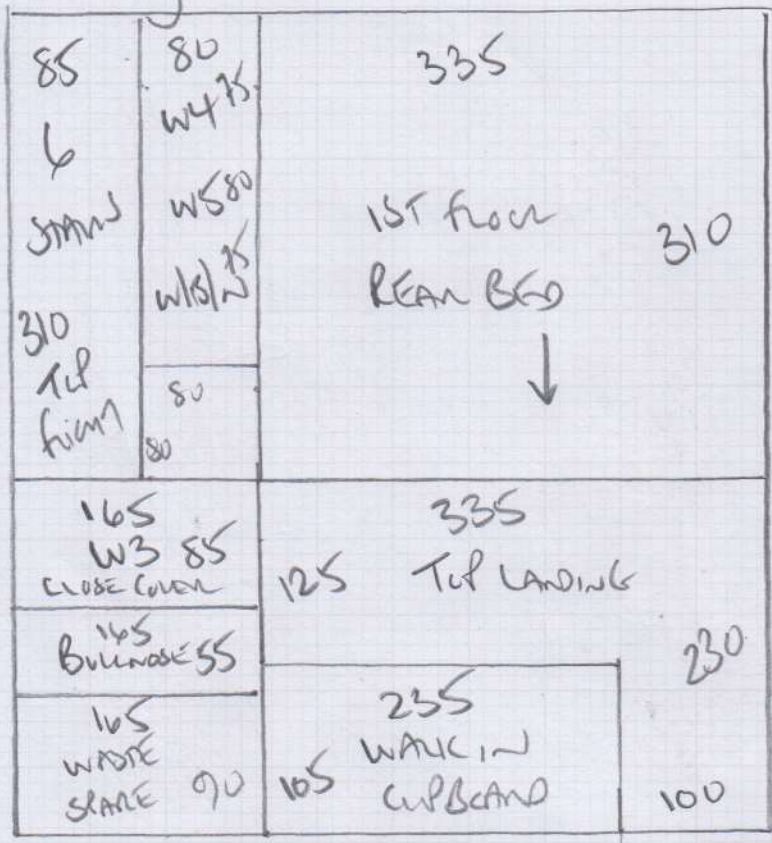 85
6
STAIRS
310
TOP
FLIGHT
80
W4 75
W5 80
W/B/N 75
80
80
335
1ST FLOOR
REAR BED
310
165
W3 85
CLOSE COVER
165
BULLNOSE 55
165
WASTE
SPARE 90
335
125 TOP LANDING
230
235
105 WALK IN
CUPBOARD
100